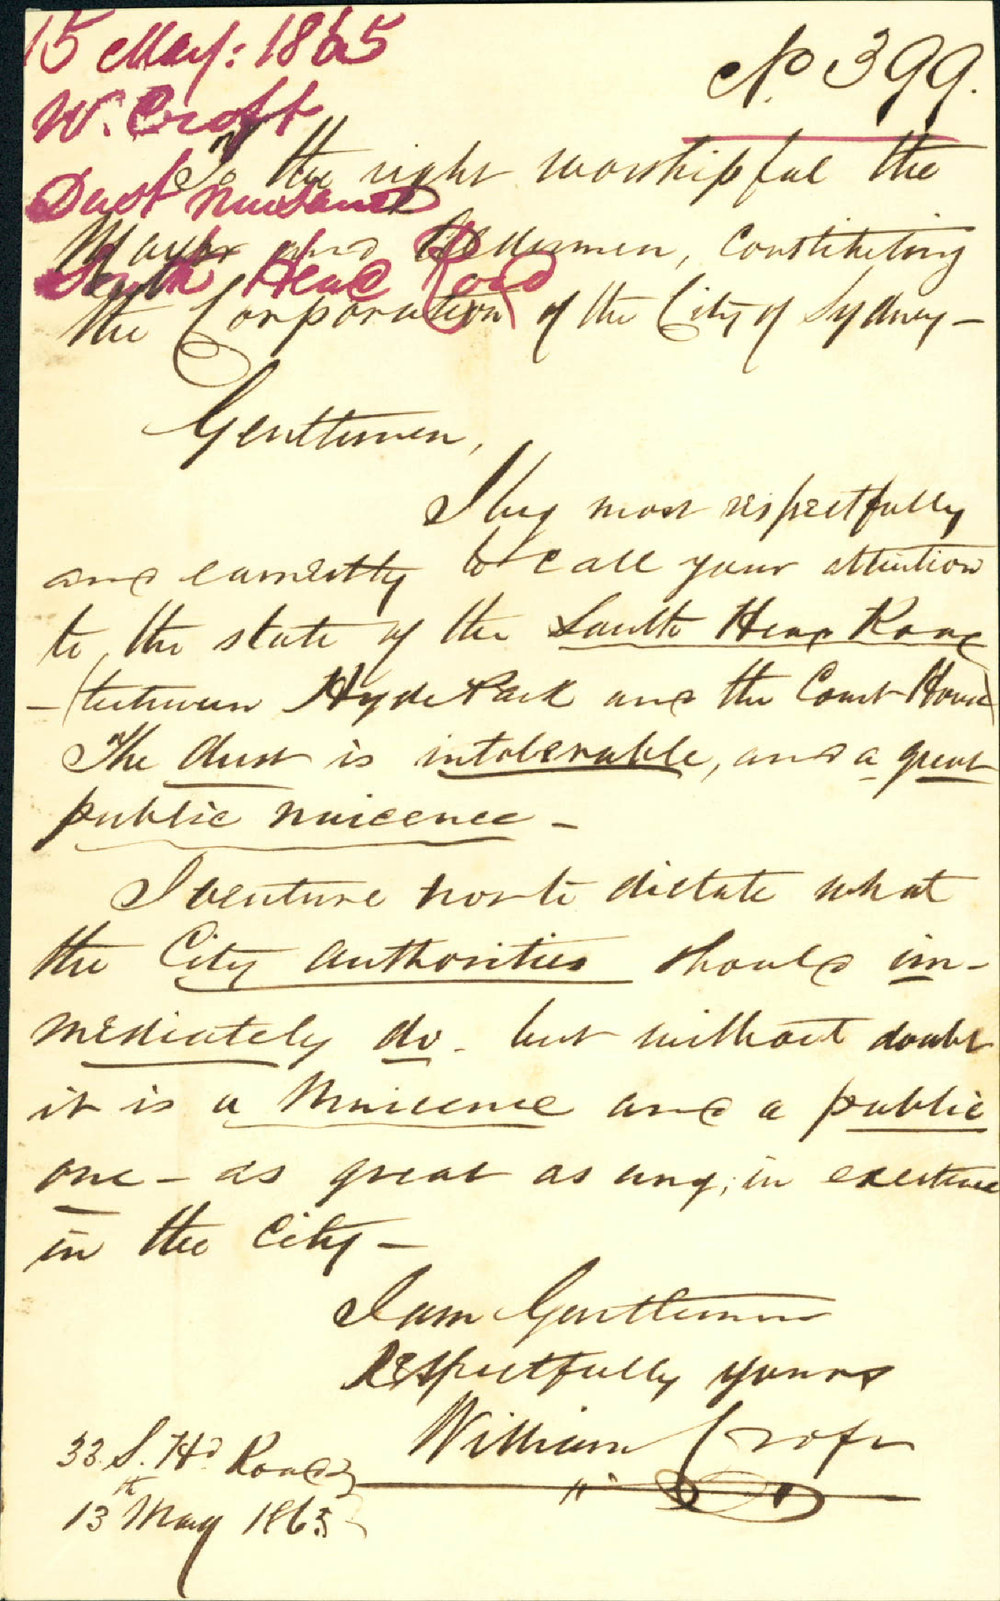 15 May: 1865
No. 399.
W. Croft
Dust nuisance
South Head Road
To the right worshipful the
Mayor and Aldermen, constituting
the Corporation of the City of Sydney –
Gentlemen,
I beg most respectfully
and earnestly to call your attention
to the state of the South Head Road
– (between Hyde Park and the Court House)
The dust is intolerable, and a great
public nuicence –
I venture not to dictate what
the City authorities should im-
mediately do – but without doubt
it is a Nuicence and a public
one – as great as any; in existence
in the City –
I am Gentlemen
Respectfully yours
William Croft
33 S. Hd. Road
13th May 1865